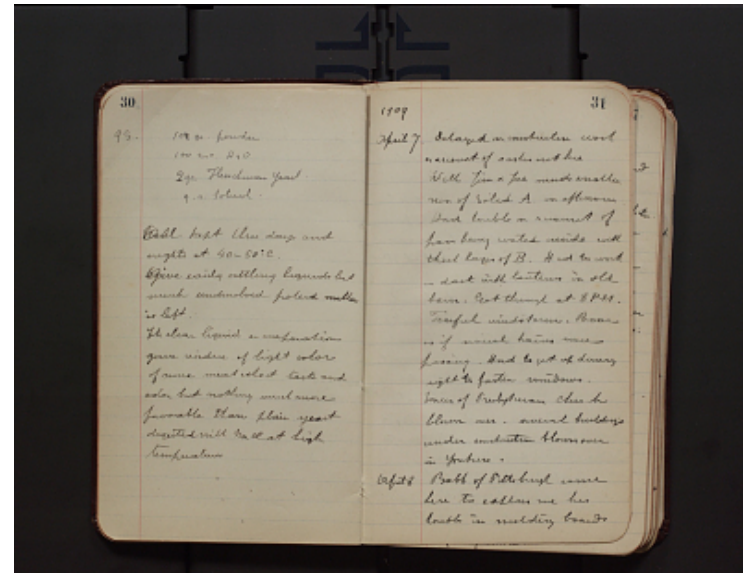 30
98. 100 gr. powder
100 c.c. H2O
2 gr. Fleischman Yeast
q.s. toluol.
All kept three days and
nights at 40-50°C.
Give easily settling liquids but
much undissolved proteid matter
is left.
The clear liquid on evaporation
gave residue of light color
of more meat extract taste and
odor but nothing much more
favorable than plain yeast
digested with NaCl at high
temperature
31
1909
April 7. Delayed in
account of
With Jim & Joe made another
run of Solid A in afternoon
Had trouble on account of
pan being coated inside with
thick layer of B. Had to work
in dark with lanterns in old
barn. Got through at 8 P.M.
Fearful windstorm. Noise
as if several trains were
passing. Had to get up during
night to fasten windows.
Tower of Presbyterian Church
blown over. several buildings
under construction blown over
in Yonkers.
April 8 Babb of Pittsburgh came
here to explain me his
trouble in molding boards